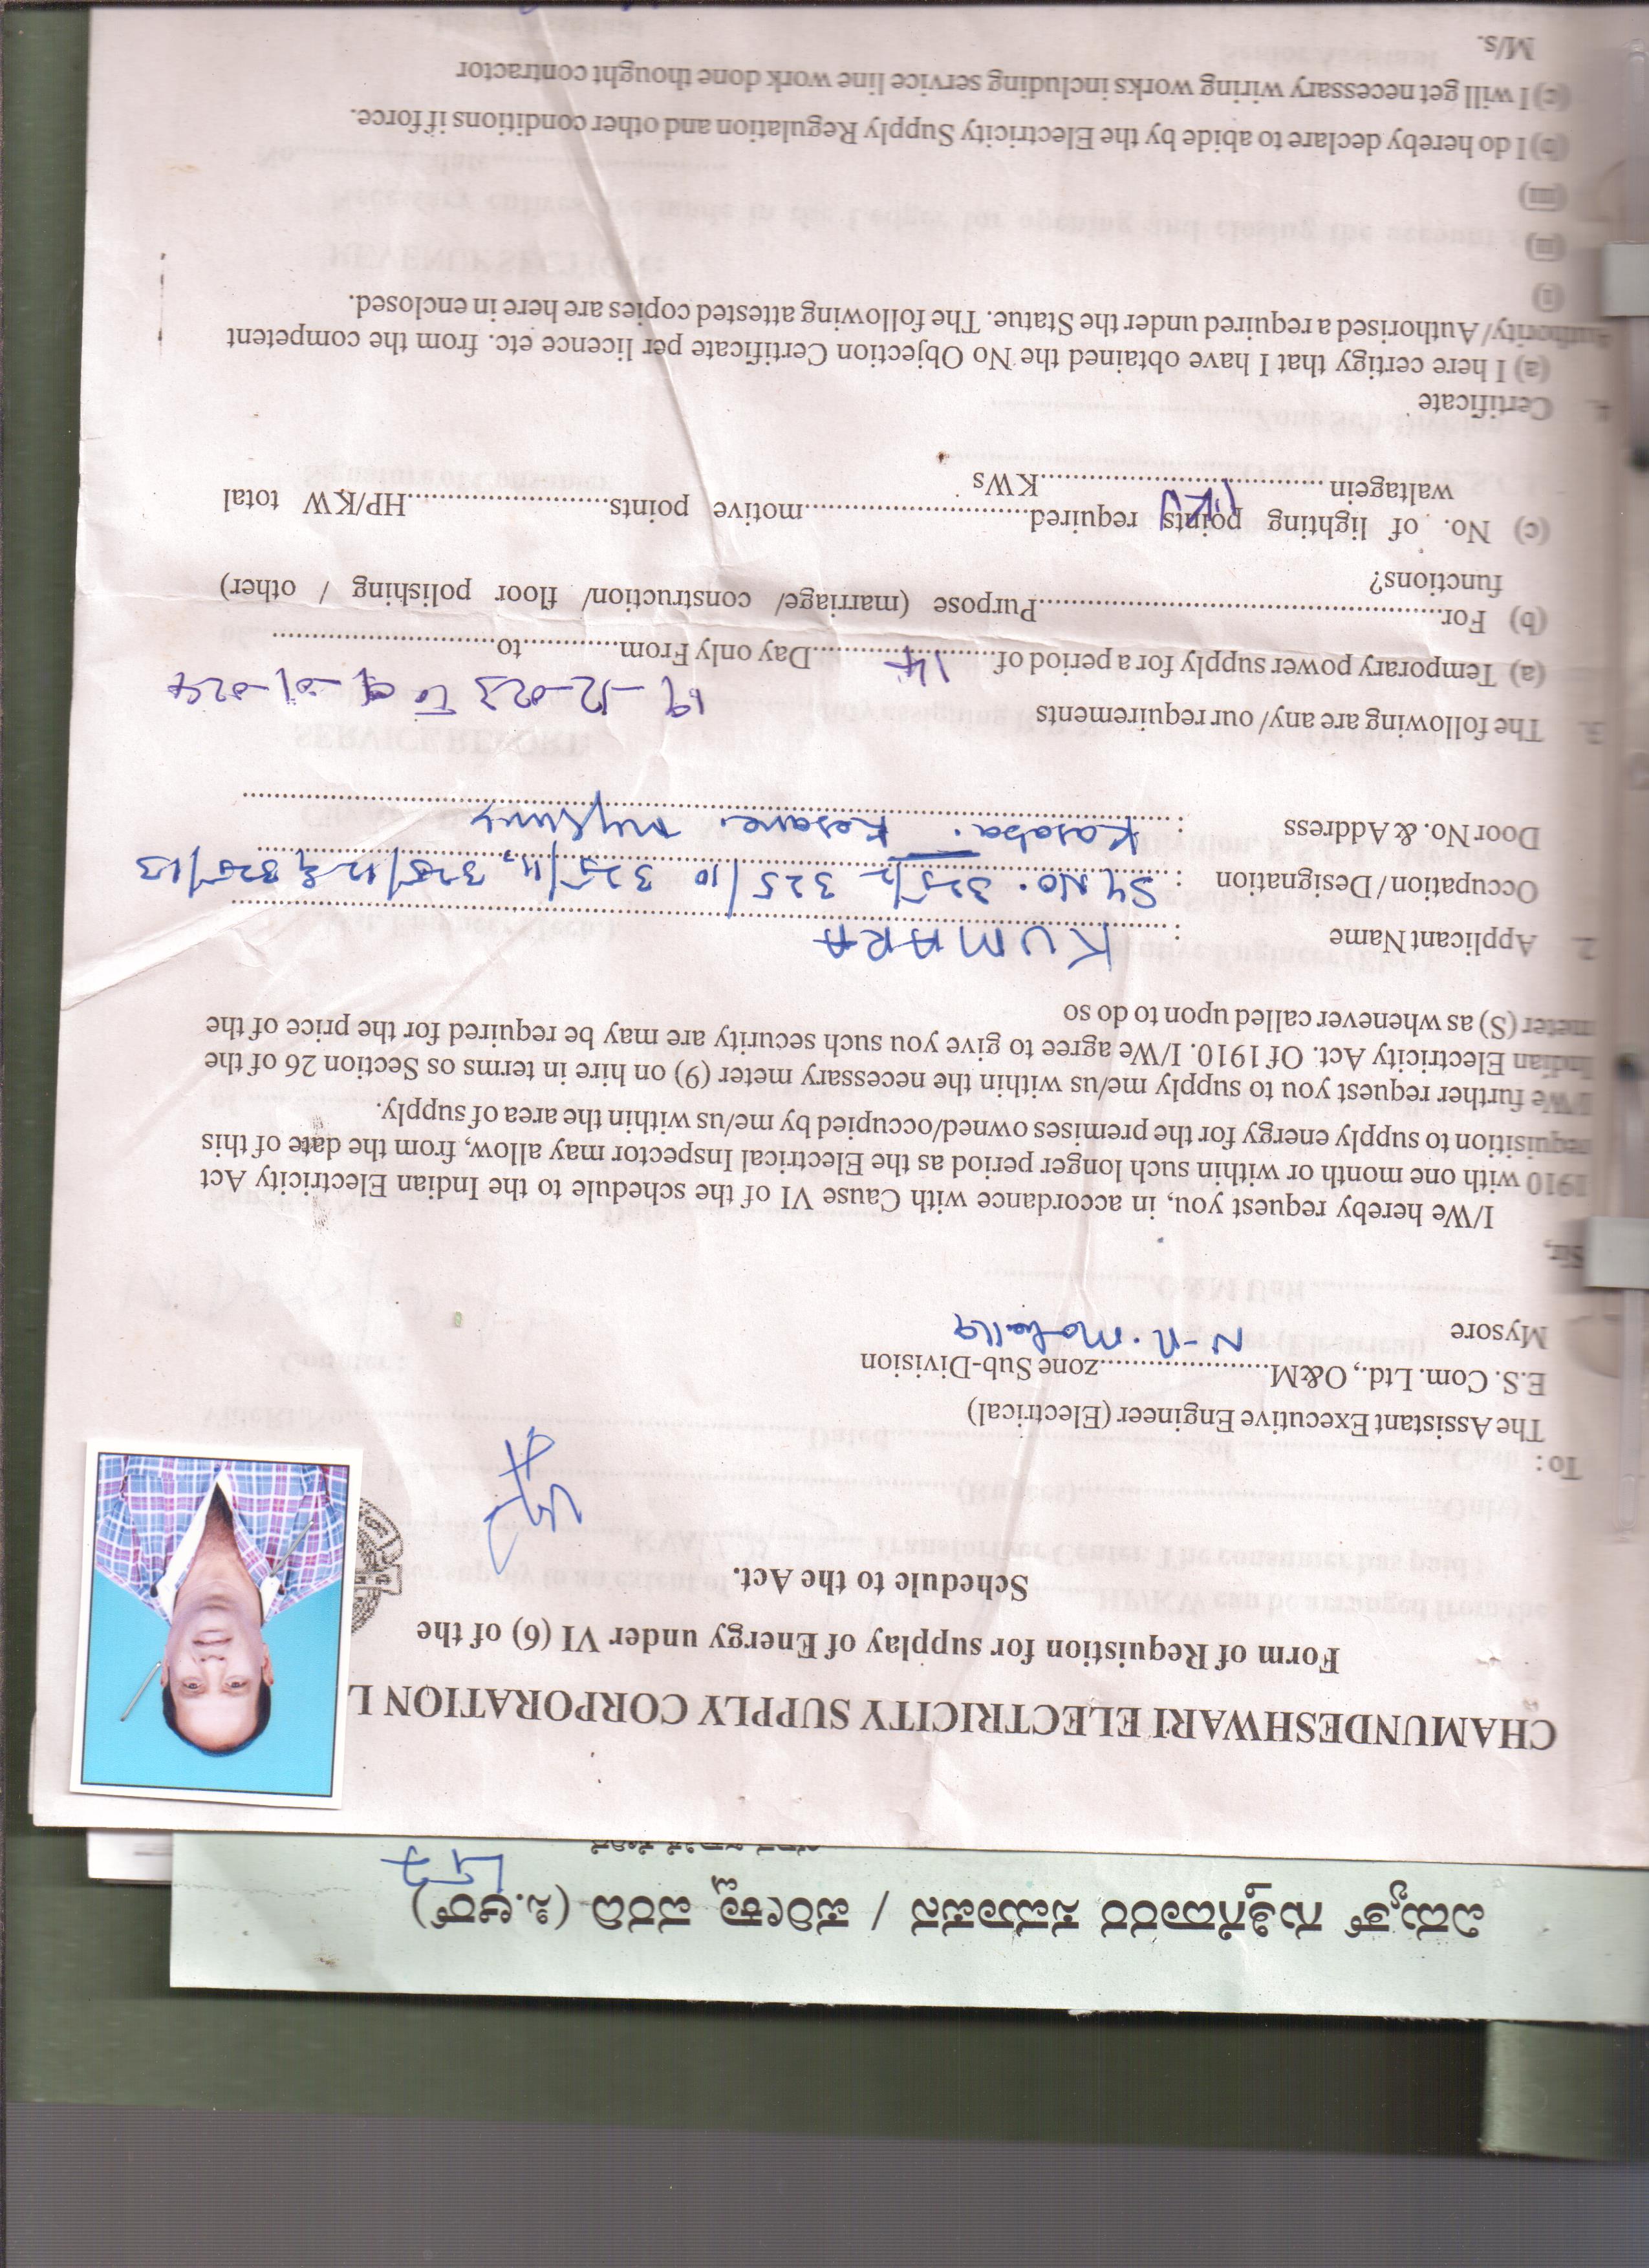 ವಿದ್ಯುತ್ ಗುತ್ತಿಗೆದಾರರ ಸಮಾಪನ / ಪರೀಕ್ಷಾ ವರದಿ (ಸಿ.ಆರ್)
CHAMUNDESHWARI ELECTRICITY SUPPLY CORPORATION L
Form of Requistion for supplay of Energy under VI (6) of the
Schedule to the Act.
To :
The Assistant Executive Engineer (Electrical)
E.S. Com. Ltd., O&M........................zone Sub-Division
N-R. Mohalla
Mysore
Sir,
I/We hereby request you, in accordance with Cause VI of the schedule to the Indian Electricity Act
1910 with one month or within such longer period as the Electrical Inspector may allow, from the date of this
requisition to supply energy for the premises owned/occupied by me/us within the area of supply.
I/We further request you to supply me/us within the necessary meter (9) on hire in terms os Section 26 of the
Indian Electricity Act. Of 1910. I/We agree to give you such security are may be required for the price of the
meter (S) as whenever called upon to do so
2. Applicant Name : KUMARA
Occupation / Designation : Sy No. 325/2 325/10 325/11, 325/12 & 325/13
Door No. & Address : Kasaba. Kesare. Mysuru
3. The following are any/ our requirements
19-12-023 To 01-01-024
(a) Temporary power supply for a period of 14 Day only From..............to..............
(b) For......................................................Purpose (marriage/ construction/ floor polishing / other)
functions?
(c) No. of lighting points required..............................motive points..........................HP/KW total
waltagein....................................KWs
4. Certificate
(a) I here certigy that I have obtained the No Objection Certificate per licence etc. from the competent
Authority/Authorised a required under the Statue. The following attested copies are here in enclosed.
(i)
(ii)
(iii)
(b) I do hereby declare to abide by the Electricity Supply Regulation and other conditions if force.
(c) I will get necessary wiring works including service line work done thought contractor
M/s.